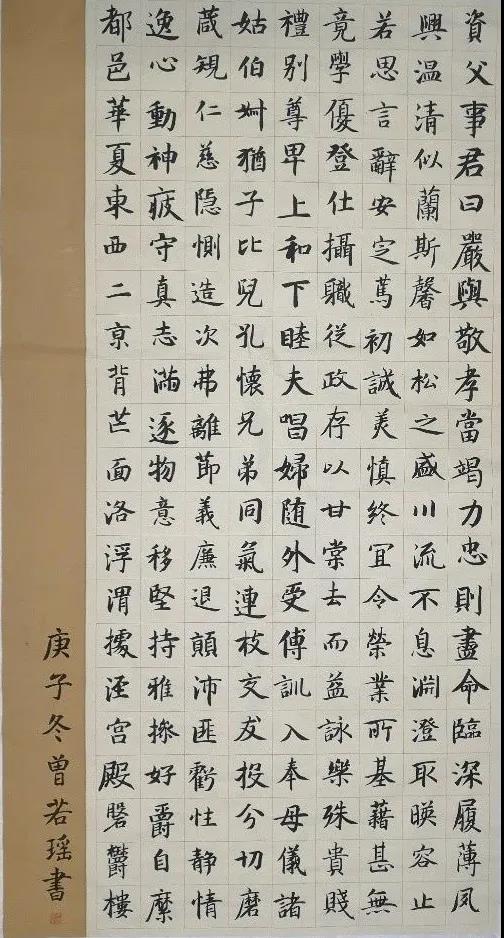 資父事君曰嚴與敬孝當竭力忠則盡命臨深履薄夙
興温清似蘭斯馨如松之盛川流不息淵澄取暎容止
若思言辭安定篤初誠美慎終冝令榮業所基藉甚無
竟學優登仕攝職從政存以甘棠去而益詠樂殊貴賤
禮別尊卑上和下睦夫唱婦随外受傅訓入奉母儀諸
姑伯叔猶子比兒孔懷兄弟同氣連枝交友投分切磨
葴規仁慈隱惻造次弗離節義廉退顛沛匪虧性静情
逸心動神疲守真志滿逐物意移堅持雅操好爵自縻
都邑華夏東西二亰背芒面洛浮渭據涇宫殿磐鬱樓
庚子冬曾若瑶書